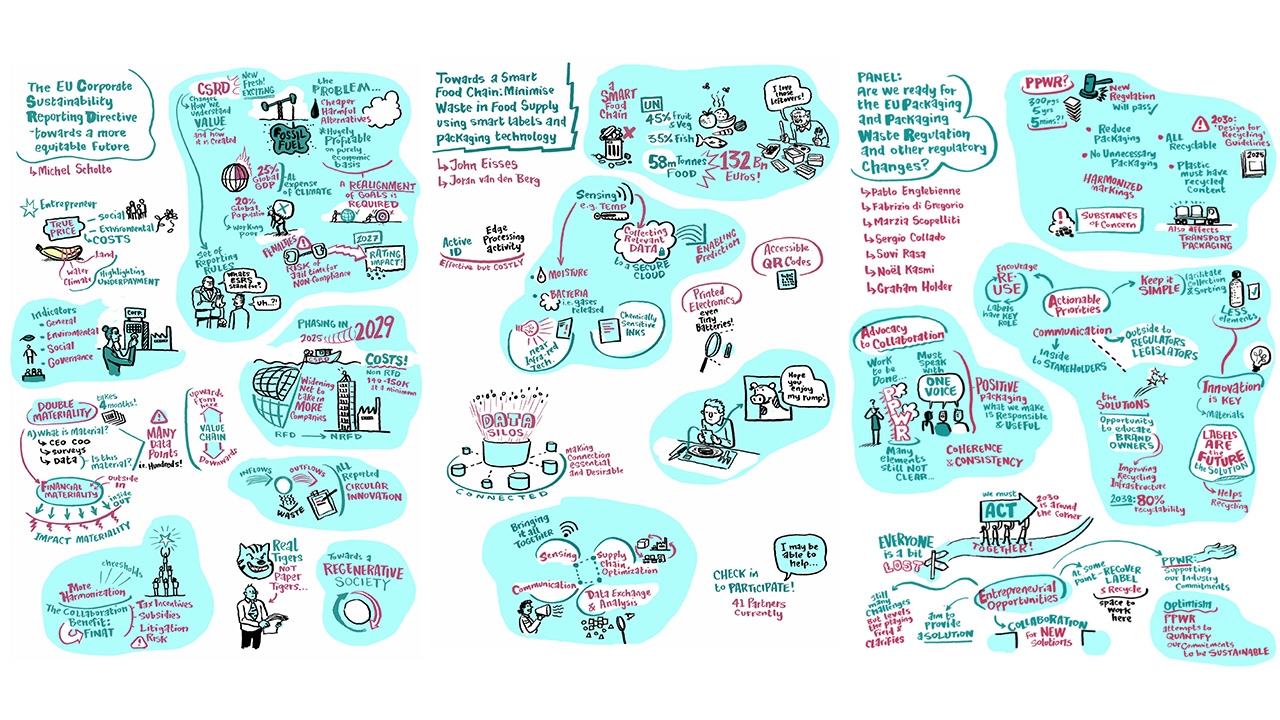 The EU Corporate
Sustainability
Reporting Directive
~towards a more
equitable Future
Michel Scholte
Entrepreneur
TRUE
PRICE
social
Enviromental
COSTS
Land
Water
Climate
Highlighting
UNDERPAYMENT
CSRD
New
Fresh!
EXCITING
Changes
How we
understand
VALUE
and how
it is created
the
PROBLEM...
Cheaper
Harmful
Alternatives
FOSSIL
FUEL
*Hugely
Profitable
on purely
economic
basis
25%
Global
GDP
At
expense
of CLIMATE
20%
Global
Population
Working
Poor
A REALIGNMENT
OF GOALS is
REQUIRED
PENALTIES
RISK OF
Jail time for
NON-Compliance
2027
RATING
IMPACT!
Set of
Reporting
RULES
Whats
ESRS
stand for?
Uh..?!
Indicators
General
Enviromental
Social
Governance
Corp.
PHASING IN
2025
2029
CSRD
Widening
Net to
take in
MORE
Companies
COSTS!
Non RFD
190-150K
at a minimum
RFD → NRFD
DOUBLE
MATERIALITY
takes
4 months!
A) What is Material?
CEO COO
surveys
Data
Is this
material?
MANY
Data
Points
i.e. Hundreds!
Upwards
From
here
VALUE
CHAIN
Downwards
FINANCIAL
MATERIALITY
outside
IN
inside
OUT
IMPACT MATERIALITY
INFLOWS
OUTFLOWS
WASTE
ALL
Reported
CIRCULAR
INNOVATION
thresholds
More
Harmonization
The Collaboration
Benefit:
FINAT
Tax Incentives
Subsidies
Litigation
Risk
Real
Tigers
NOT
Paper
Tigers...
Towards a
REGENERATIVE
SOCIETY
Towards a Smart
Food Chain: Minimise
Waste in Food Supply
using smart labels and
packaging technology
John Eisses
Joran van den Berg
a
SMART
Food
Chain
UN
45% Fruit
& Veg
35% Fish
58m Tonnes
FOOD
132 Bn
Euros!
I love
those
leftovers!
Sensing
e.g. TEMP
Collecting
Relevant
DATA
to a SECURE
CLOUD
ENABLING
Prediction
Active
ID
Edge
Processing
activity
Effective but COSTLY
MOISTURE
BACTERIA
i.e. gases
released
Near
Infra-red
Tech.
Chemically
Sensitive
INKS
Accessible
QR Codes
Printed
Electronics
even
Tiny
Batteries!
DATA
SILOS
CONNECTED
MAKING
Connection
essential
and Desirable
Hope
you
enjoy
my rump!
Bringing
it all
TOGETHER
Sensing
Supply
Chain
Optimization
Communication
Data Exchange
& Analysis
I may be
able to
help...
CHECK in
to PARTICIPATE!
41 Partners
Currently
PANEL:
Are we ready for
the EU Packaging
and Packaging
Waste Regulation
and other regulatory
Changes?
Pablo Englebienne
Fabrizio di Gregorio
Marzia Scopelliti
Sergio Collado
Suvi Rasa
Noël Kasmi
Graham Holder
PPWR?
300 pgs
5 yrs
5 mins?!
New
Regulation
will pass!
Reduce
Packaging
No Unnecessary
Packaging
ALL
Recyclable
Plastic
must have
recycled
Content
2030:
'Design for
Recycling'
Guidelines
HARMONIZED
markings
SUBSTANCES
of Concern
Also Affects
TRANSPORT
PACKAGING
Encourage
RE-
USE
Labels
have KEY
ROLE
Actionable
Priorities
Keep it
SIMPLE
facilitate
Collection
& Sorting
LESS
elements
Communication
Inside
to STAKEHOLDERS
Outside to
REGULATORS
LEGISLATORS
Advocacy
to Collaboration
Work
to be
Done...
PPWR
Must
speak
with
ONE
VOICE
Many
elements
still NOT
CLEAR...
POSITIVE
Packaging
what we make
is Responsible
& USEFUL
COHERENCE
& CONSISTENCY
the
SOLUTIONS
Opportunity
to educate
BRAND
OWNERS
Improving
Recycling
Infrastructure
2038: 80%
recyclability
Innovation
is KEY
Materials
LABELS
ARE
the
FUTURE
the SOLUTION
Helps
Recycling
we must
ACT
TOGETHER!
2030
is around
the corner
EVERYONE
is a bit
LOST
still
many
challenges
But levels
the playing
field &
Clarifies
aim to
Provide
a SOLUTION
Entrepreneurial
Opportunities
At some
point
RECOVER
LABEL
& Recycle
space to
work
here
COLLABORATION
for NEW
Solutions
PPWR
Supporting
our Industry
Commitments
Optimism
PPWR
attempts to
QUANTIFY
our Commitments
to be SUSTAINABLE